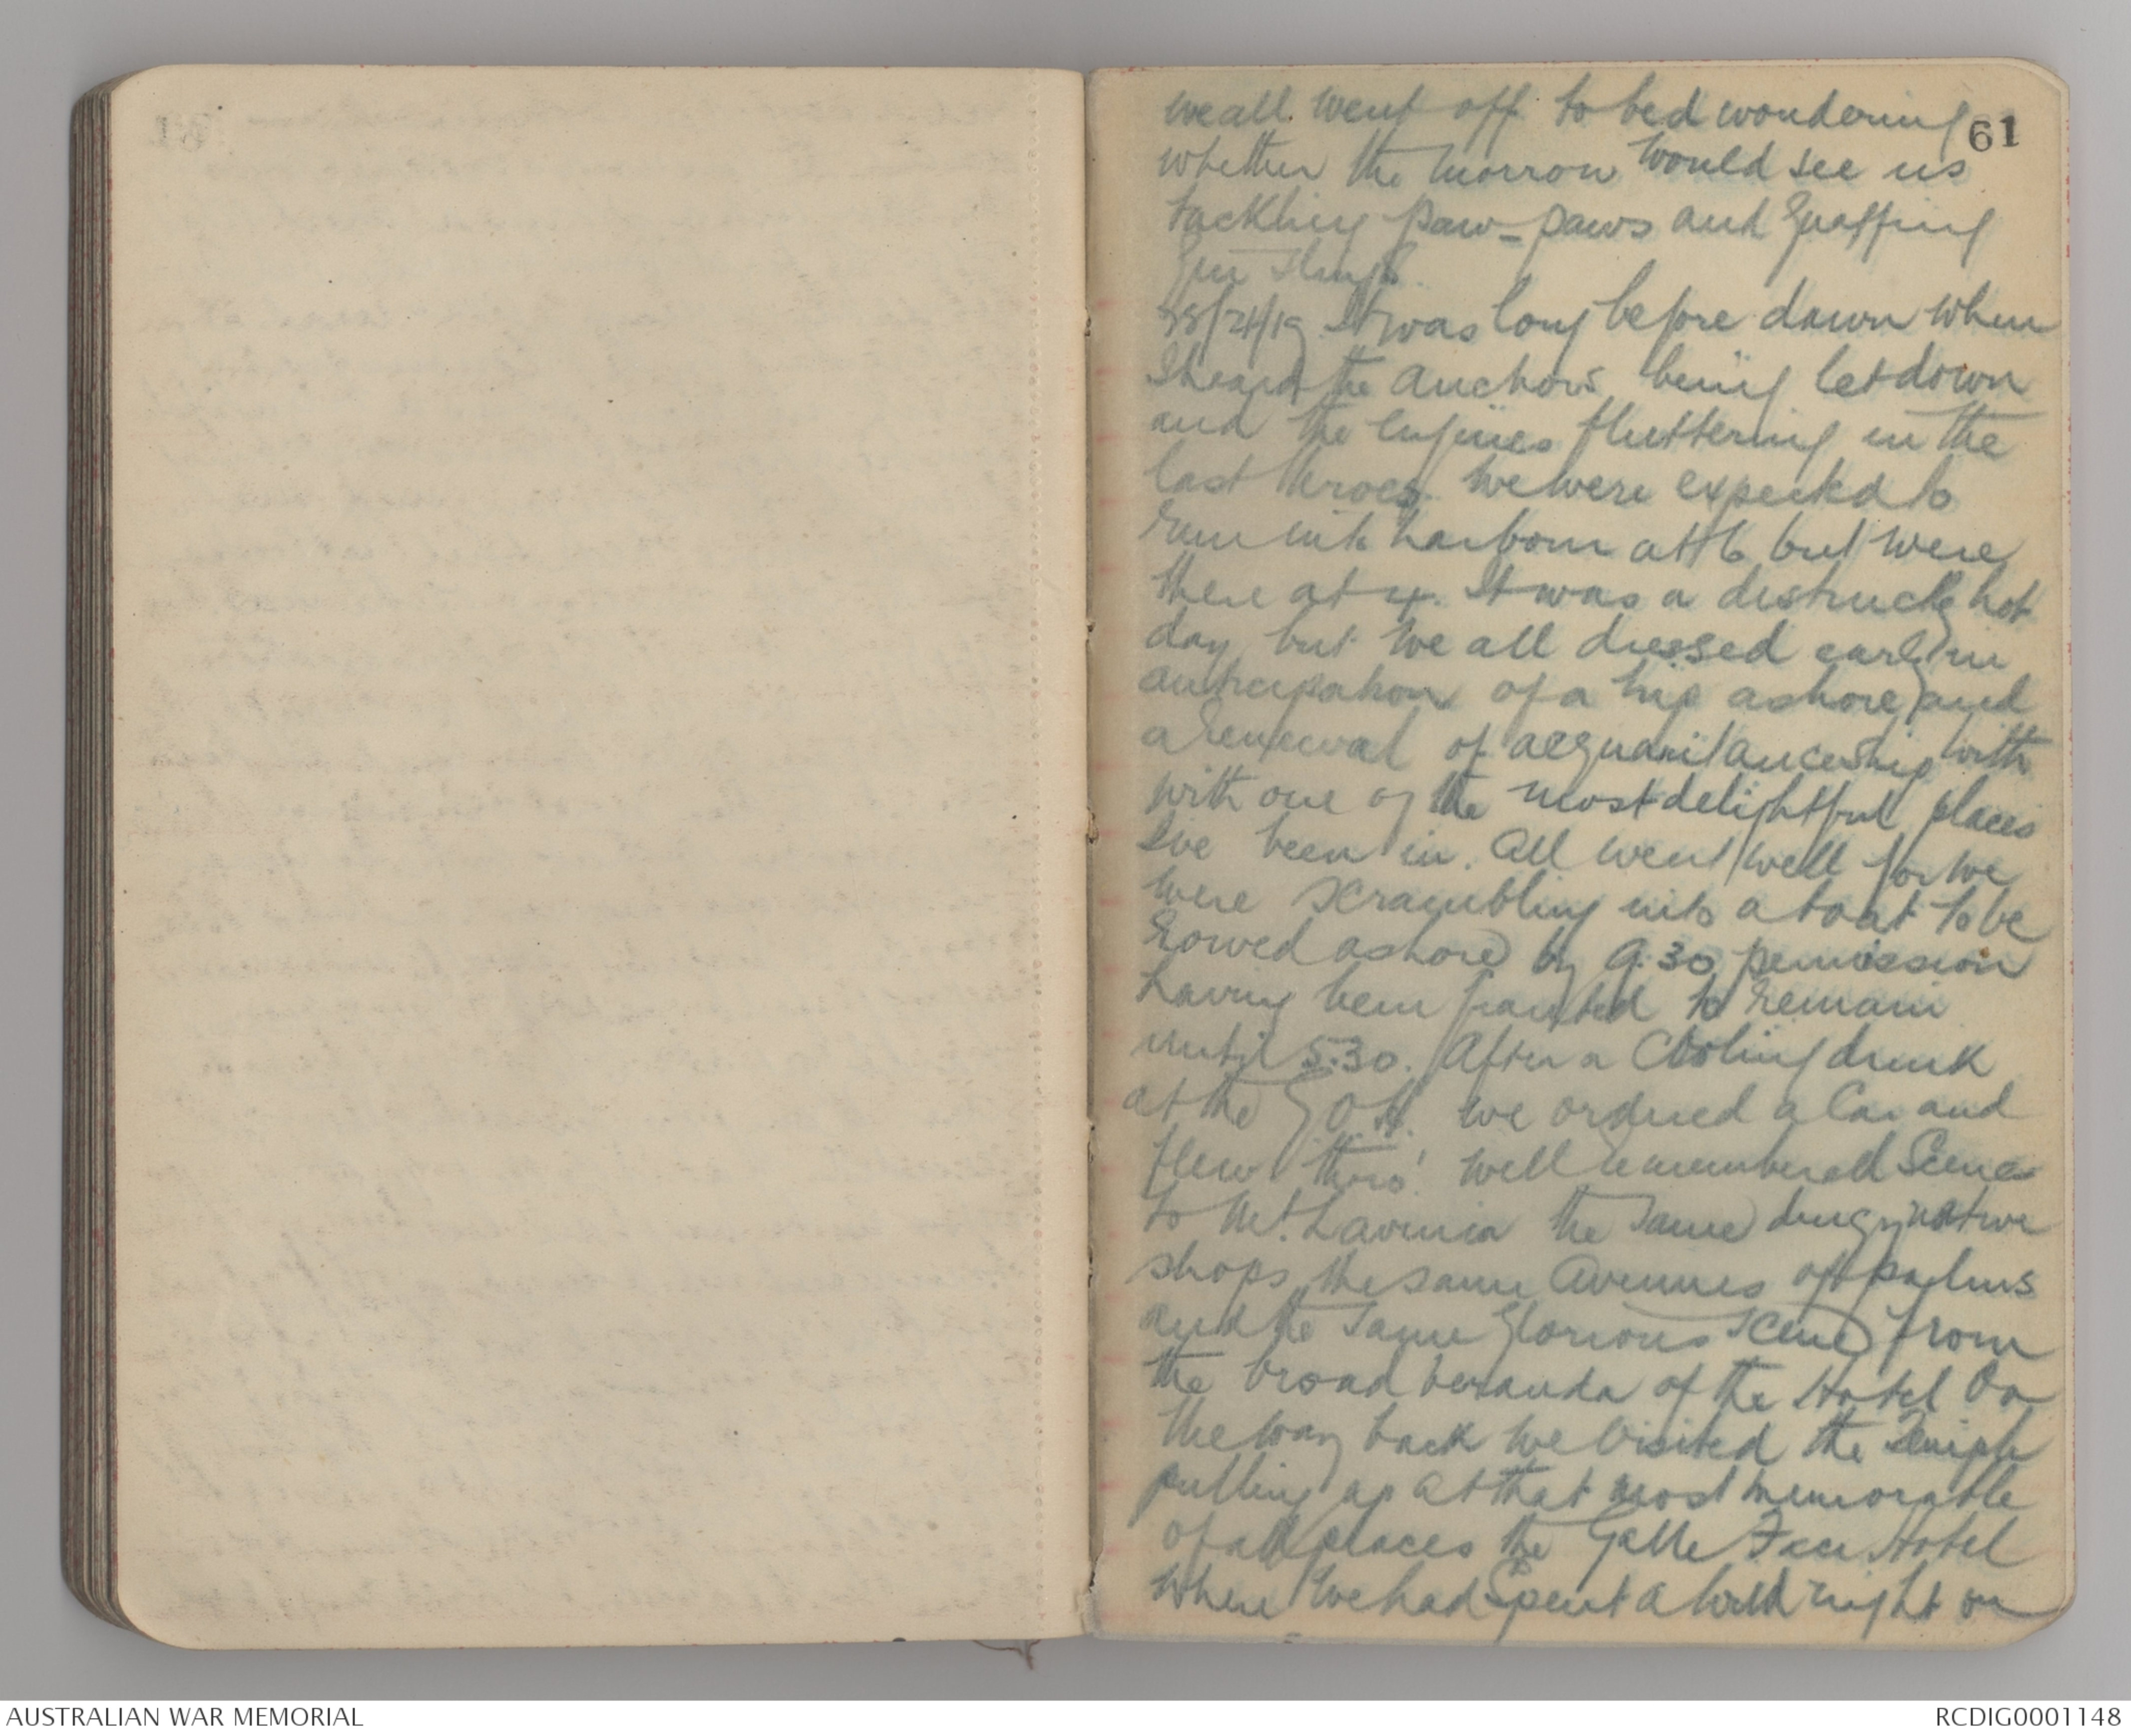 61
we all went off to bed wondering
whether the morrow would see us
tackling paw-paws and quaffing
Gin Slings.
It was long before dawn when
I heard the anchors being let down
and the engines fluttering in the
last throes. We were expected to
run into harbour at 6 but were
there at 4. It was a hot
day but we all dressed early in
anticipation of a trip ashore and
a renewal of acquaintanceship with
with one of the most delightful places
I've been in. All went well for we
were scrambling into a boat to be
rowed ashore by 9.30 permission
having been granted to remain
until 5.30. After a cooling drink
at the G.O.H. we ordered a Car and
flew thro' well remembered Scenes
to Mt. Lavinia the same dingy native
shops the same Avenues of palms
and the same glorious scene from
the broad veranda of the Hotel On
the way back we visited the Temple
pulling up at that most memorable
of all places the Galle Face Hotel
where we had spent a wild night on
AUSTRALIAN WAR MEMORIAL
RCDIG0001148